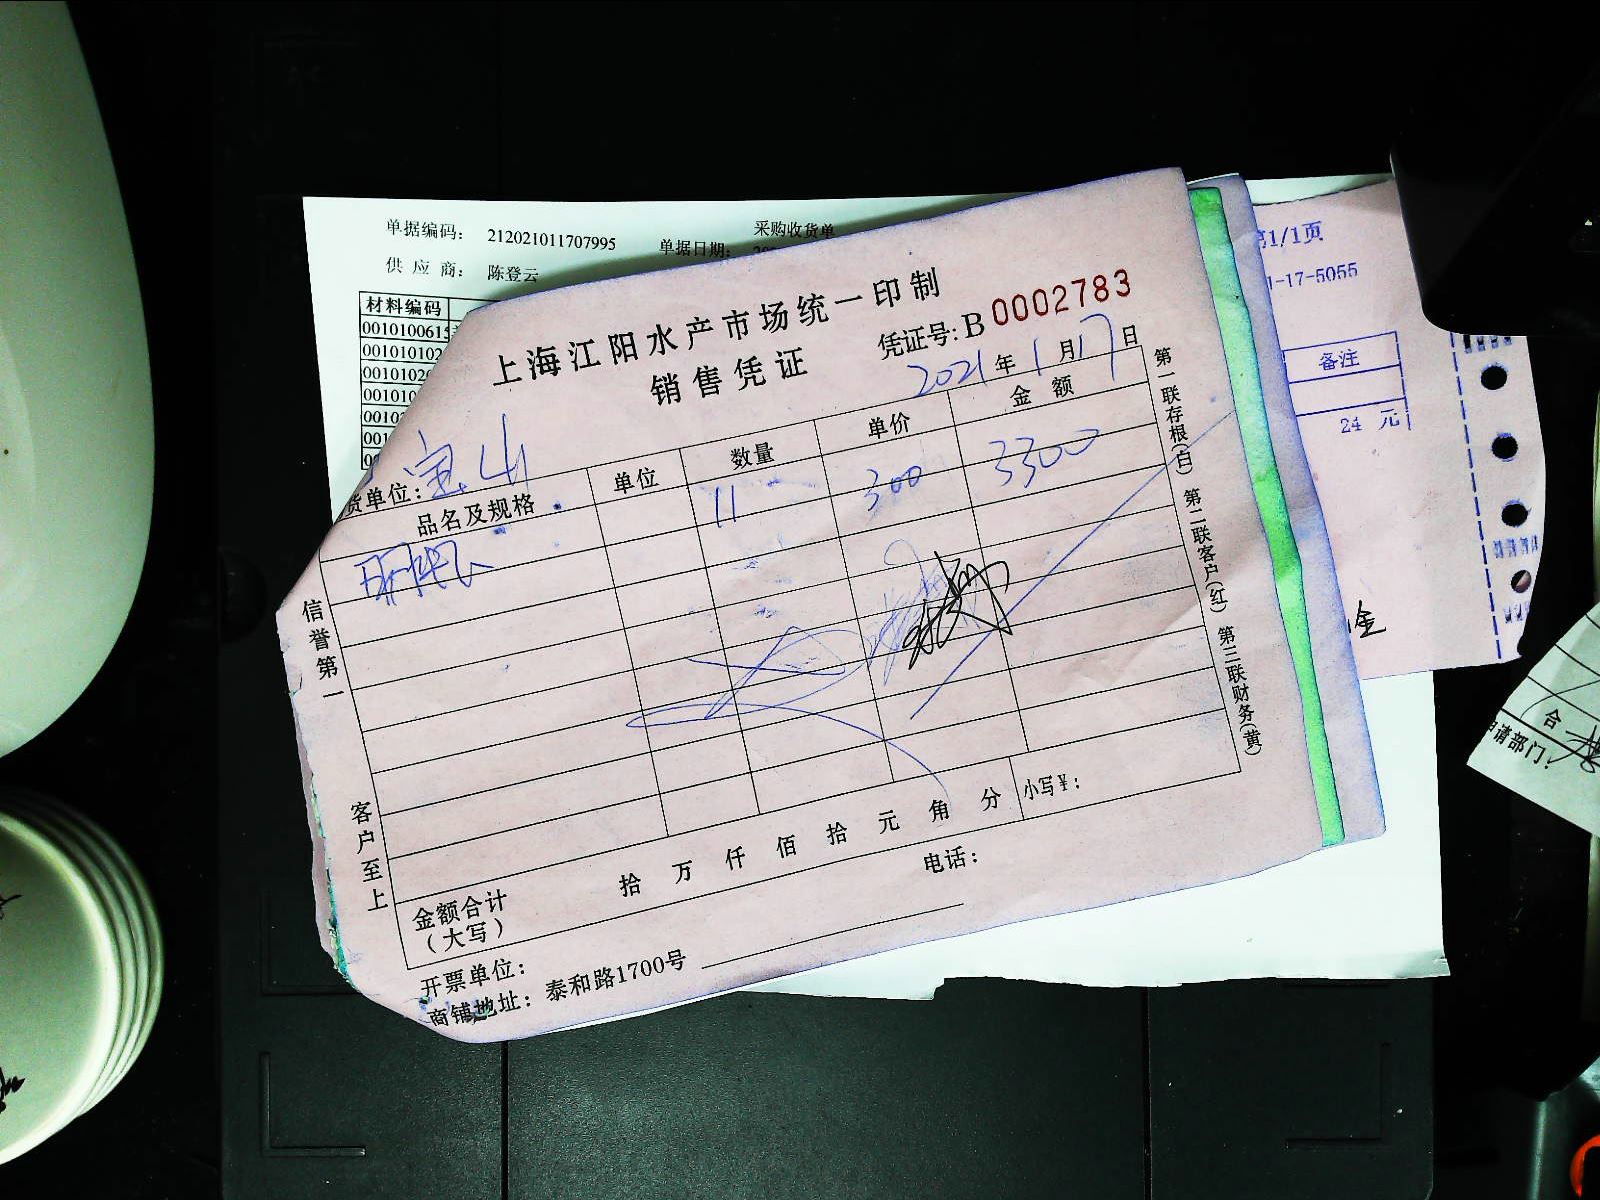 单据编码: 212021011707995
采购收货单
单据日期:
供 应 商: 陈登云
材料编码
0010100615
001010102
00101020
00101
0010
001
00
第1/1页
1-17-5055
备注
24 元
金
上海江阳水产市场统一印制
销售凭证
凭证号: B 0002783
2021 年 1 月 17 日
货单位: 宝山
品名及规格 单位 数量 单价 金 额
11 300 3300
信誉第一
客户至上
第一联存根(白) 第二联客户(红) 第三联财务(黄)
金额合计
(大写)
拾 万 仟 佰 拾 元 角 分 小写¥:
开票单位: 电话:
商铺地址: 泰和路1700号
合
申请部门: